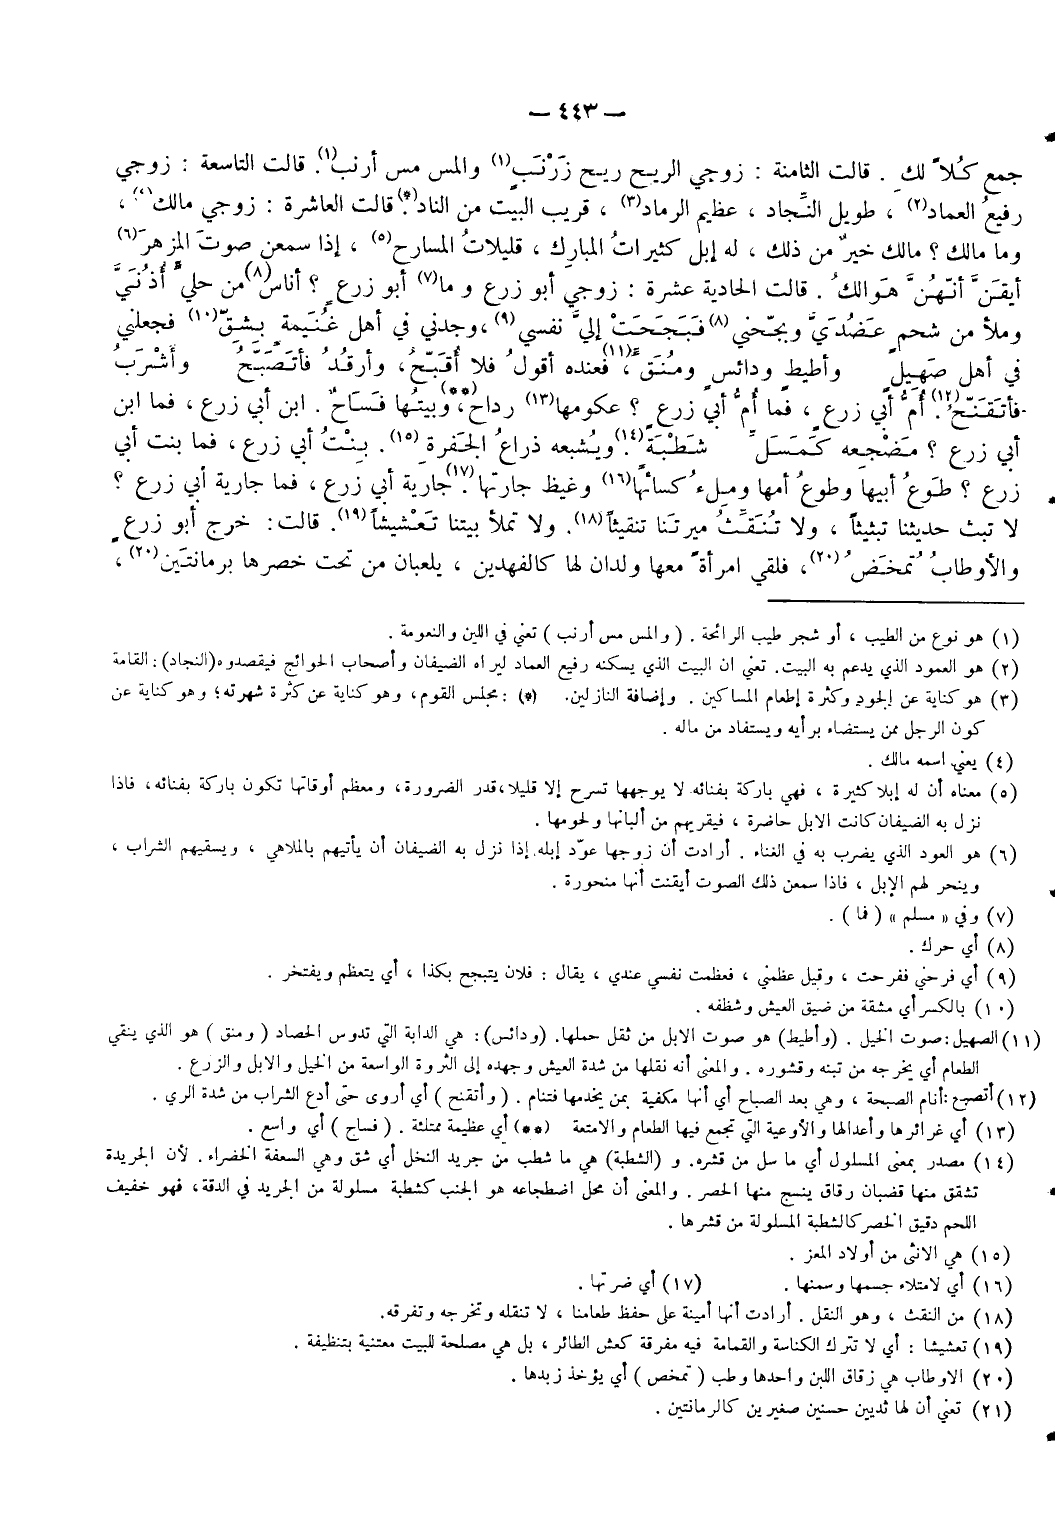 — ٤٤٣ —
جمع كُلاًّ لكِ . قالت الثامنة : زوجي الريح ريح زَرْنَبٍ(١) والمس مس أرنب(١). قالت التاسعة : زوجي
رفيعُ العماد(٢) ، طويل النِّجاد ، عظيم الرماد(٣) ، قريب البيت من الناد(*). قالت العاشرة : زوجي مالك(٤) ،
وما مالك ؟ مالك خيرٌ من ذلك ، له إبل كثيراتُ المبارِك ، قليلاتُ المسارح(٥) ، إذا سمعن صوتَ المزهر(٦)
أيقنَّ أنهُنَّ هَوالكُ . قالت الحادية عشرة : زوجي أبو زرع و ما(٧) أبو زرع ؟ أناس(٨) من حليٍّ أُذُنَيَّ
وملأ من شحم عَضُدَيَّ وبجَّحني(٨) فَبَجَحَتْ إليَّ نفسي(٩) ،وجدني في أهل غُنَيمة بِشِقّ(١٠) فجعلني
في أهل صَهيلٍ وأطيطٍ ودائسٍ ومُنَقٍّ(١١)، فعنده أقولُ فلا أُقَبَّحُ، وأرقُدُ فأتَصَبَّحُ وأشْرَبُ
فأتَقَنَّحُ(١٢). أُمُّ أبي زرعٍ ، فما أُمُّ أبي زرعٍ ؟ عكومها(١٣) رداح(**)، وبيتُها فَسَاحٌ . ابن أبي زرع ، فما ابن
أبي زرع ؟ مَضْجعه كَمَسَلِّ شَطْبَةٍ(١٤). ويُشبعه ذراعُ الجَفرة (١٥). بِنْتُ أبي زرع ، فما بنت أبي
زرع ؟ طَوعُ أبيها وطوعُ أمها وملءُ كسائها(١٦) وغيظ جارتها(١٧). جارية أبي زرع ، فما جارية أبي زرع ؟
لا تبث حديثنا تبثيثاً ، ولا تُنَقِّثُ ميرتَنا تنقيثاً(١٨). ولا تملأ بيتنا تَعْشيشاً(١٩). قالت: خرج أبو زرعٍ
والأوطابُ تُمخَضُ(٢٠)، فلقي امرأةً معها ولدان لها كالفهدين ، يلعبان من تحت خصرها برمانتَين(٢٠) ،
(١) هو نوع من الطيب ، أو شجر طيب الرائحة . ( والمس مس أرنب ) تعني في اللين والنعومة .
(٢) هو العمود الذي يدعم به البيت. تعني ان البيت الذي يسكنه رفيع العماد ليراه الضيفان وأصحاب الحوائج فيقصدوه(النجاد): القامة
(٣) هو كناية عن الجود وكثرة إطعام المساكين . وإضافة النازلين. (*) :مجلس القوم، وهو كناية عن كثرة شهرته؛ وهو كناية عن
كون الرجل ممن يستضاء برأيه ويستفاد من ماله .
(٤) يعني اسمه مالك .
(٥) معناه أن له إبلا كثيرة ، فهي باركة بفنائه لا يوجهها تسرح إلا قليلا،قدر الضرورة، ومعظم أوقاتها تكون باركة بفنائه، فاذا
نزل به الضيفان كانت الابل حاضرة ، فيقريهم من ألبانها ولحومها .
(٦) هو العود الذي يضرب به في الغناء . أرادت أن زوجها عوّد إبله إذا نزل به الضيفان أن يأتيهم بالملاهي ، ويسقيهم الشراب ،
وينحر لهم الإبل ، فاذا سمعن ذلك الصوت أيقنت أنها منحورة .
(٧) وفي « مسلم » ( فما ) .
(٨) أي حرك .
(٩) أي فرحني ففرحت ، وقيل عظمني ، فعظمت نفسي عندي ، يقال : فلان يتبجح بكذا ، أي يتعظم ويفتخر .
(١٠) بالكسر أي مشقة من ضيق العيش وشظفه .
(١١) الصهيل:صوت الخيل . (وأطيط) هو صوت الابل من ثقل حملها. (ودائس): هي الدابة التي تدوس الحصاد ( ومنق ) هو الذي ينقي
الطعام أي يخرجه من تبنه وقشوره . والمعنى أنه نقلها من شدة العيش وجهده إلى الثروة الواسعة من الخيل والابل والزرع .
(١٢) أتصبح:أنام الصبحة ، وهي بعد الصباح أي أنها مكفية بمن يخدمها فتنام . ( وأتقنح ) أي أروى حتى أدع الشراب من شدة الري .
(١٣) أي غرائرها وأعدالها والأوعية التي تجمع فيها الطعام والامتعة (**) أي عظيمة ممتلئة . ( فساح ) أي واسع .
(١٤) مصدر بمعنى المسلول أي ما سل من قشره. و (الشطبة) هي ما شطب من جريد النخل أي شق وهي السعفة الخضراء . لأن الجريدة
تشقق منها قضبان رقاق ينسج منها الحصر . والمعنى أن محل اضطجاعه هو الجنب كشطبة مسلولة من الجريد في الدقة، فهو خفيف
اللحم دقيق الخصر كالشطبة المسلولة من قشرها .
(١٥) هي الانثى من أولاد المعز .
(١٦) أي لامتلاء جسمها وسمنها . (١٧) أي ضرتها .
(١٨) من النقث ، وهو النقل . أرادت أنها أمينة على حفظ طعامنا ، لا تنقله وتخرجه وتفرقه.
(١٩) تعشيشا : أي لا تترك الكناسة والقمامة فيه مفرقة كعش الطائر ، بل هي مصلحة للبيت معتنية بتنظيفة .
(٢٠) الاوطاب هي زقاق اللبن واحدها وطب ( تمخص ) أي يؤخذ زبدها .
(٢١) تعني أن لها ثديين حسنين صغيرين كالرمانتين .